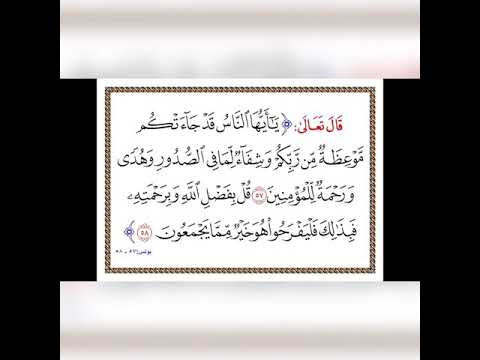 قَالَ تَعَالَىٰ: ﴿ يَٰٓأَيُّهَا ٱلنَّاسُ قَدْ جَآءَتْكُم
مَّوْعِظَةٌ مِّن رَّبِّكُمْ وَشِفَآءٌ لِّمَا فِي ٱلصُّدُورِ وَهُدًى
وَرَحْمَةٌ لِّلْمُؤْمِنِينَ ٥٧ قُلْ بِفَضْلِ ٱللَّهِ وَبِرَحْمَتِهِۦ
فَبِذَٰلِكَ فَلْيَفْرَحُوا۟ هُوَ خَيْرٌ مِّمَّا يَجْمَعُونَ ٥٨ ﴾
يونس: ٥٧ - ٥٨